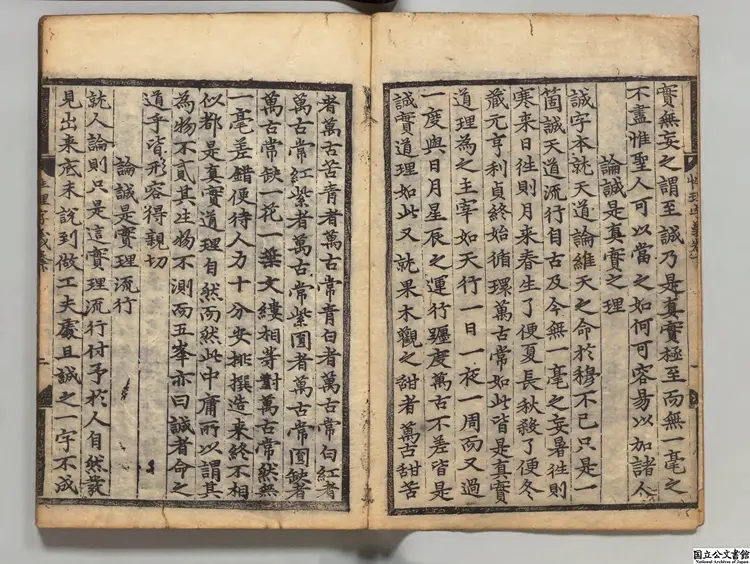 實無妄之謂至誠乃是真實極至而無一毫之
不盡惟聖人可以當之如何可容易以加諸人
論誠是真實之理
誠字本就天道論維天之命於穆不已只是一
箇誠天道流行自古及今無一毫之妄暑往則
寒来日往則月来春生了便夏長秋殺了便冬
藏元亨利貞終始循環萬古常如此皆是真實
道理為之主宰如天行一日一夜一周而又過
一度與日月星辰之運行躔度萬古不差皆是
誠實道理如此又就果木觀之甜者萬古甜苦
者萬古苦青者萬古常青白者萬古常白紅者
萬古常紅紫者萬古常紫圓者萬古常圓缺者
萬古常缺一花一葉文縷相等對萬古常然無
一毫差錯便待人力十分安排撰造来終不相
似都是真實道理自然而然此中庸所以謂其
為物不貳其生物不測而五峯亦曰誠者命之
道乎皆形容得親切
論誠是實理流行
就人論則只是這實理流行付予於人自然發
見出来底未說到做工夫處且誠之一字不成
国立公文書館
National Archives of Japan